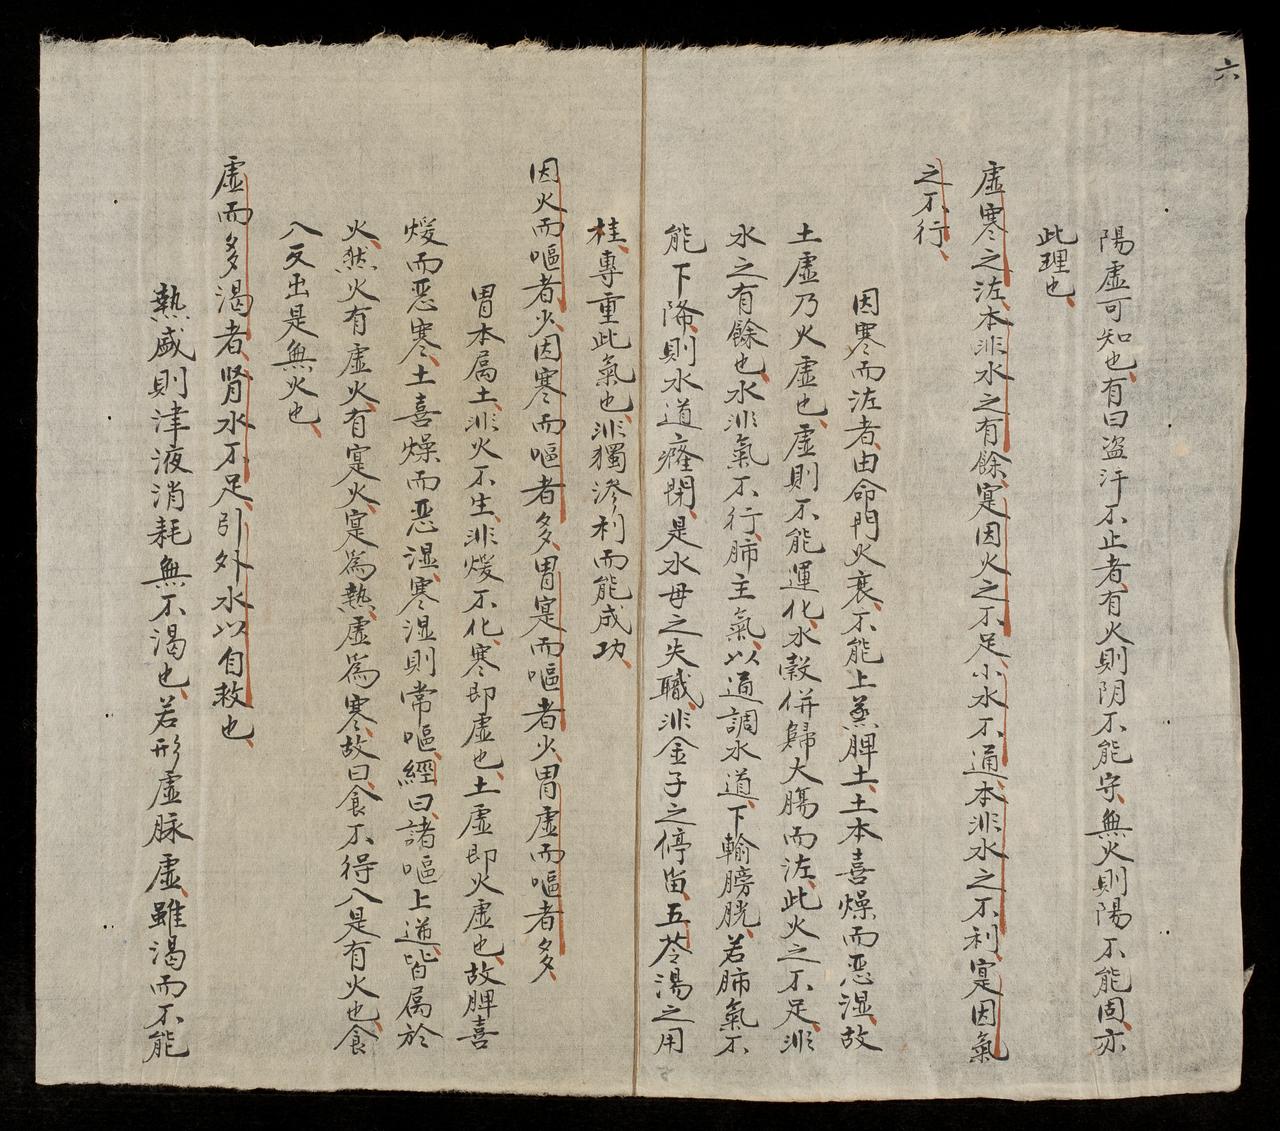 六
陽虛可知也有曰盗汗不止者有火則阴不能守無火則陽不能固亦
此理也
虛寒之泣本非水之有餘寔因火之不足小水不通本非水之不利寔因氣
之不行
因寒而泣者由命門火衰不能上蒸脾土土本喜燥而惡湿故
土虛乃火虛也虛則不能運化水穀併歸大膓而泣此火之不足非
水之有餘也水非氣不行肺主氣以通調水道下輸膀胱若肺氣不
能下降則水道癃閉是水母之失職非金子之停畄五苓湯之用
桂專重此氣也非獨滲利而能成功
因火而嘔者少因寒而嘔者多胃寔而嘔者少胃虛而嘔者多
胃本属土非火不生非煖不化寒即虛也土虛即火虛也故脾喜
煖而恶寒土喜燥而恶湿寒湿則常嘔經曰諸嘔上逆皆属於
火然火有虛火有寔火寔爲熱虛爲寒故曰食不得入是有火也食
入反出是無火也
虛而多渴者肾水不足引外水以自救也
熱盛則津液消耗無不渴也若形虛脉虛雖渴而不能